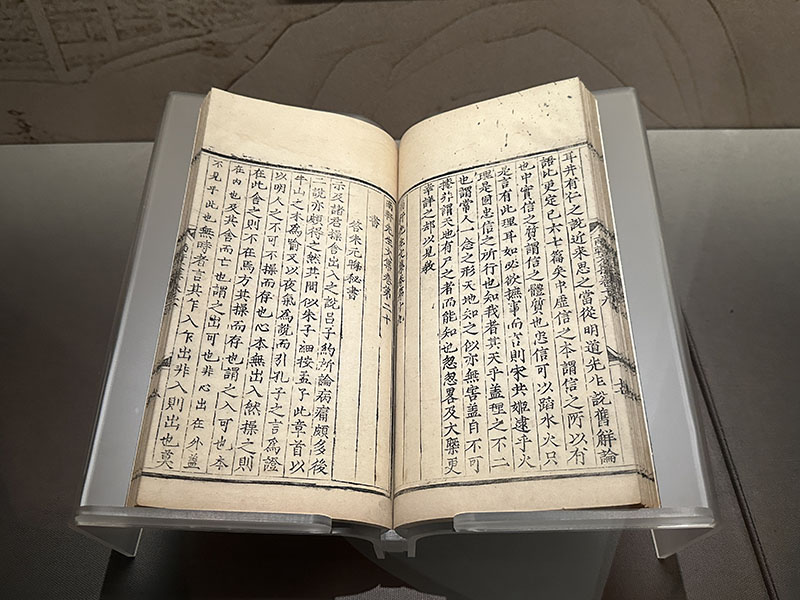 耳井有仁之說近來思之當從明道先生說舊解論
語比更定已六七篇矣中虛信之本謂信之所以有
也中實信之質謂信之體質也忠信可以蹈水火只
是言有此理耳如必欲撫事而言則宋共姬逮乎火
理是固忠信之所行也知我者其天乎蓋理之不二
也謂常人一念之形天地知之似亦無害蓋自不可
揜非謂天地有尸之者而能知也怱怱畧及大槩更
幸詳之却以見教
南軒先生文集卷第二十
書
答朱元晦秘書
示及諸君操舍出入之說呂子約所論病痛頗多後
一說亦頗得之然其間似未子細按孟子此章首以
牛山之木為喻又以夜氣為說而引孔子之言為證
以明人之不可不操而存也心本無出入然操之則
在此舍之則不在焉方其操而存也謂之入可也本
在內也及其舍而亡也謂之出可也非心出在外蓋
不見乎此也無時者言其乍入乍出非入則出也莫